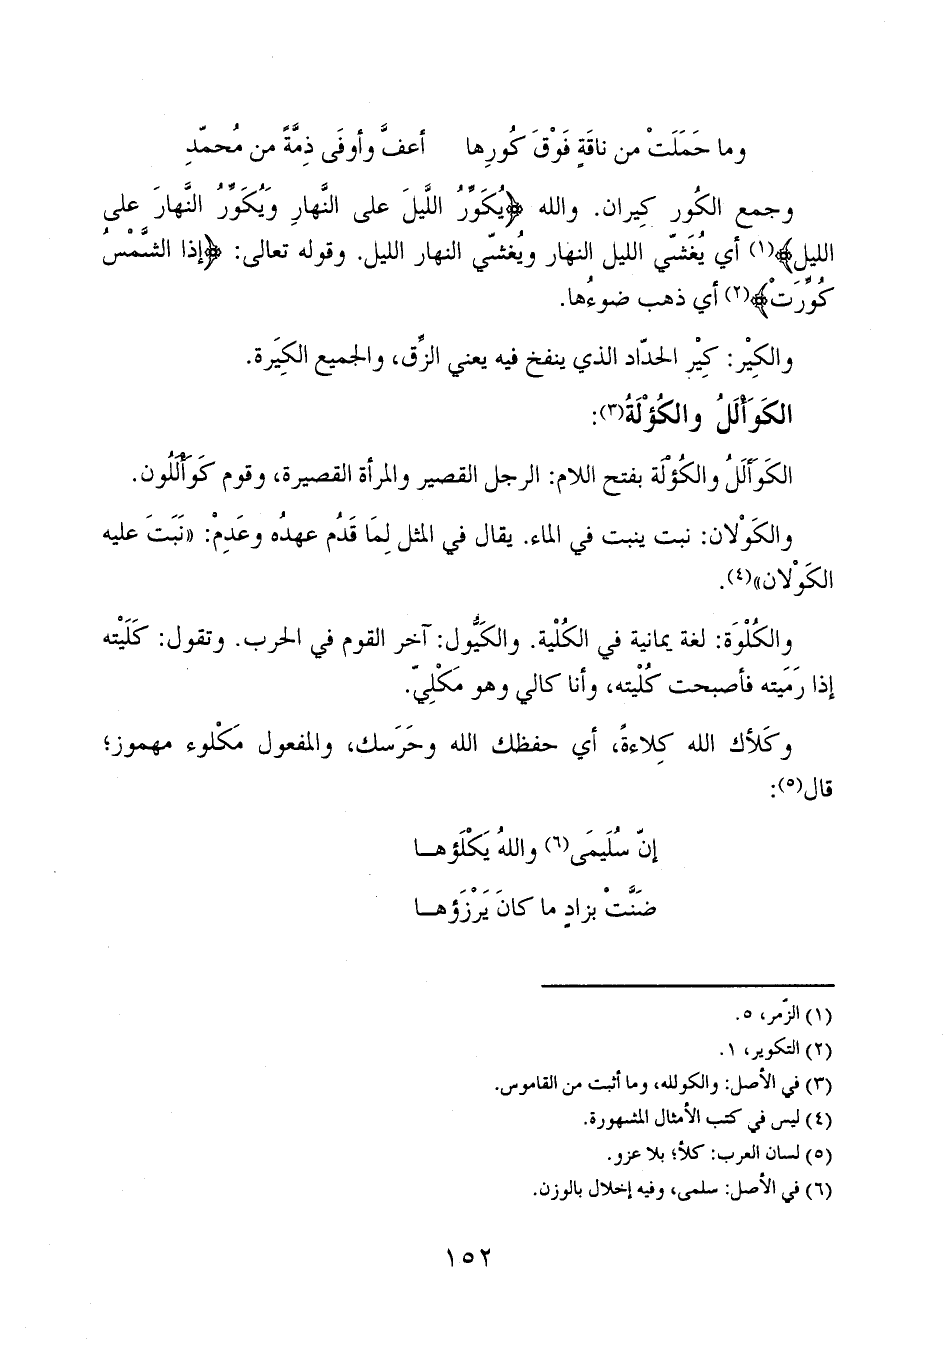 وما حَمَلَتْ من ناقَةٍ فَوْقَ كُورِها أعفَّ وأوفَى ذِمَّةً من مُحمّدِ
وجمع الكُور كِيران. والله ﴿يُكَوِّرُ اللَّيلَ على النَّهارِ وَيُكَوِّرُ النَّهارَ على
الليل﴾(١) أي يُغَشّي الليل النهار ويُغشّي النهار الليل. وقوله تعالى: ﴿إذا الشَّمْسُ
كُوِّرَتْ﴾(٢) أي ذهب ضوءُها.
والكِيْر: كِيْر الحدّاد الذي ينفخ فيه يعني الزِّق، والجميع الكِيَرة.
الكَوَأْلَلُ والكُؤْلَةُ(٣):
الكَوَأْلَلُ والكُؤْلَة بفتح اللام: الرجل القصير والمرأة القصيرة، وقوم كَوَأْلَلُون.
والكَوْلان: نبت ينبت في الماء. يقال في المثل لِمَا قَدُم عهدُه وعَدِمْ: «نَبَتَ عليه
الكَوْلان»(٤).
والكُلْوَة: لغة يمانية في الكُلْية. والكَيُّول: آخر القوم في الحرب. وتقول: كَلَيْته
إذا رَمَيته فأصبحت كُلْيته، وأنا كالي وهو مَكْلِيّ.
وكَلأك الله كِلاءةً، أي حفظك الله وحَرَسك، والمفعول مَكْلوء مهموز؛
قال(٥):
إنّ سُلَيمَى(٦) واللهُ يَكْلَؤُهـا
ضَنَّتْ بزادٍ ما كانَ يَرْزَؤُهـا
(١) الزّمر، ٥.
(٢) التكوير، ١.
(٣) في الأصل: والكولله، وما أثبت من القاموس.
(٤) ليس في كتب الأمثال المشهورة.
(٥) لسان العرب: كلأ؛ بلا عزو.
(٦) في الأصل: سلمى، وفيه إخلال بالوزن.
١٥٢